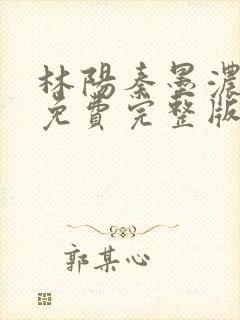 林陽秦墨濃
免費完整版
郭某心